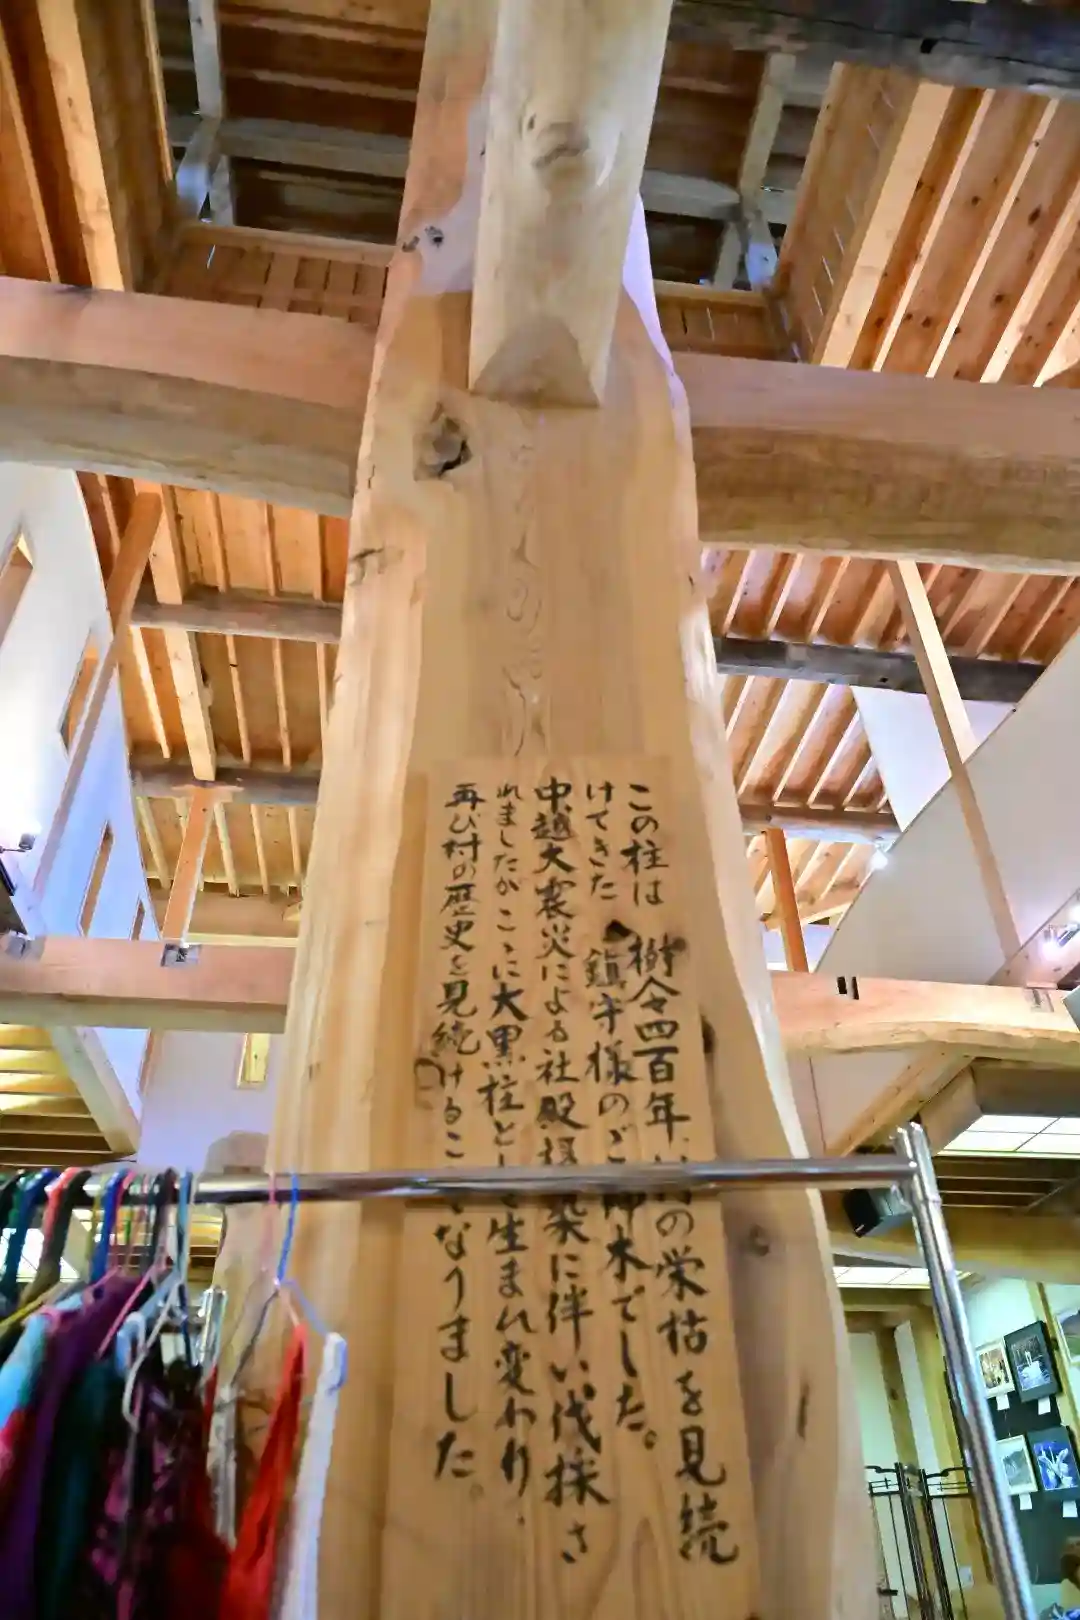 この柱は 樹令四百年、の栄枯を見続
けてきた 鎮守様のご神木でした。
中越大震災による社殿改築に伴い伐採さ
れましたがここに大黒柱として生まれ変わり、
再び村の歴史を見続けることになりました。